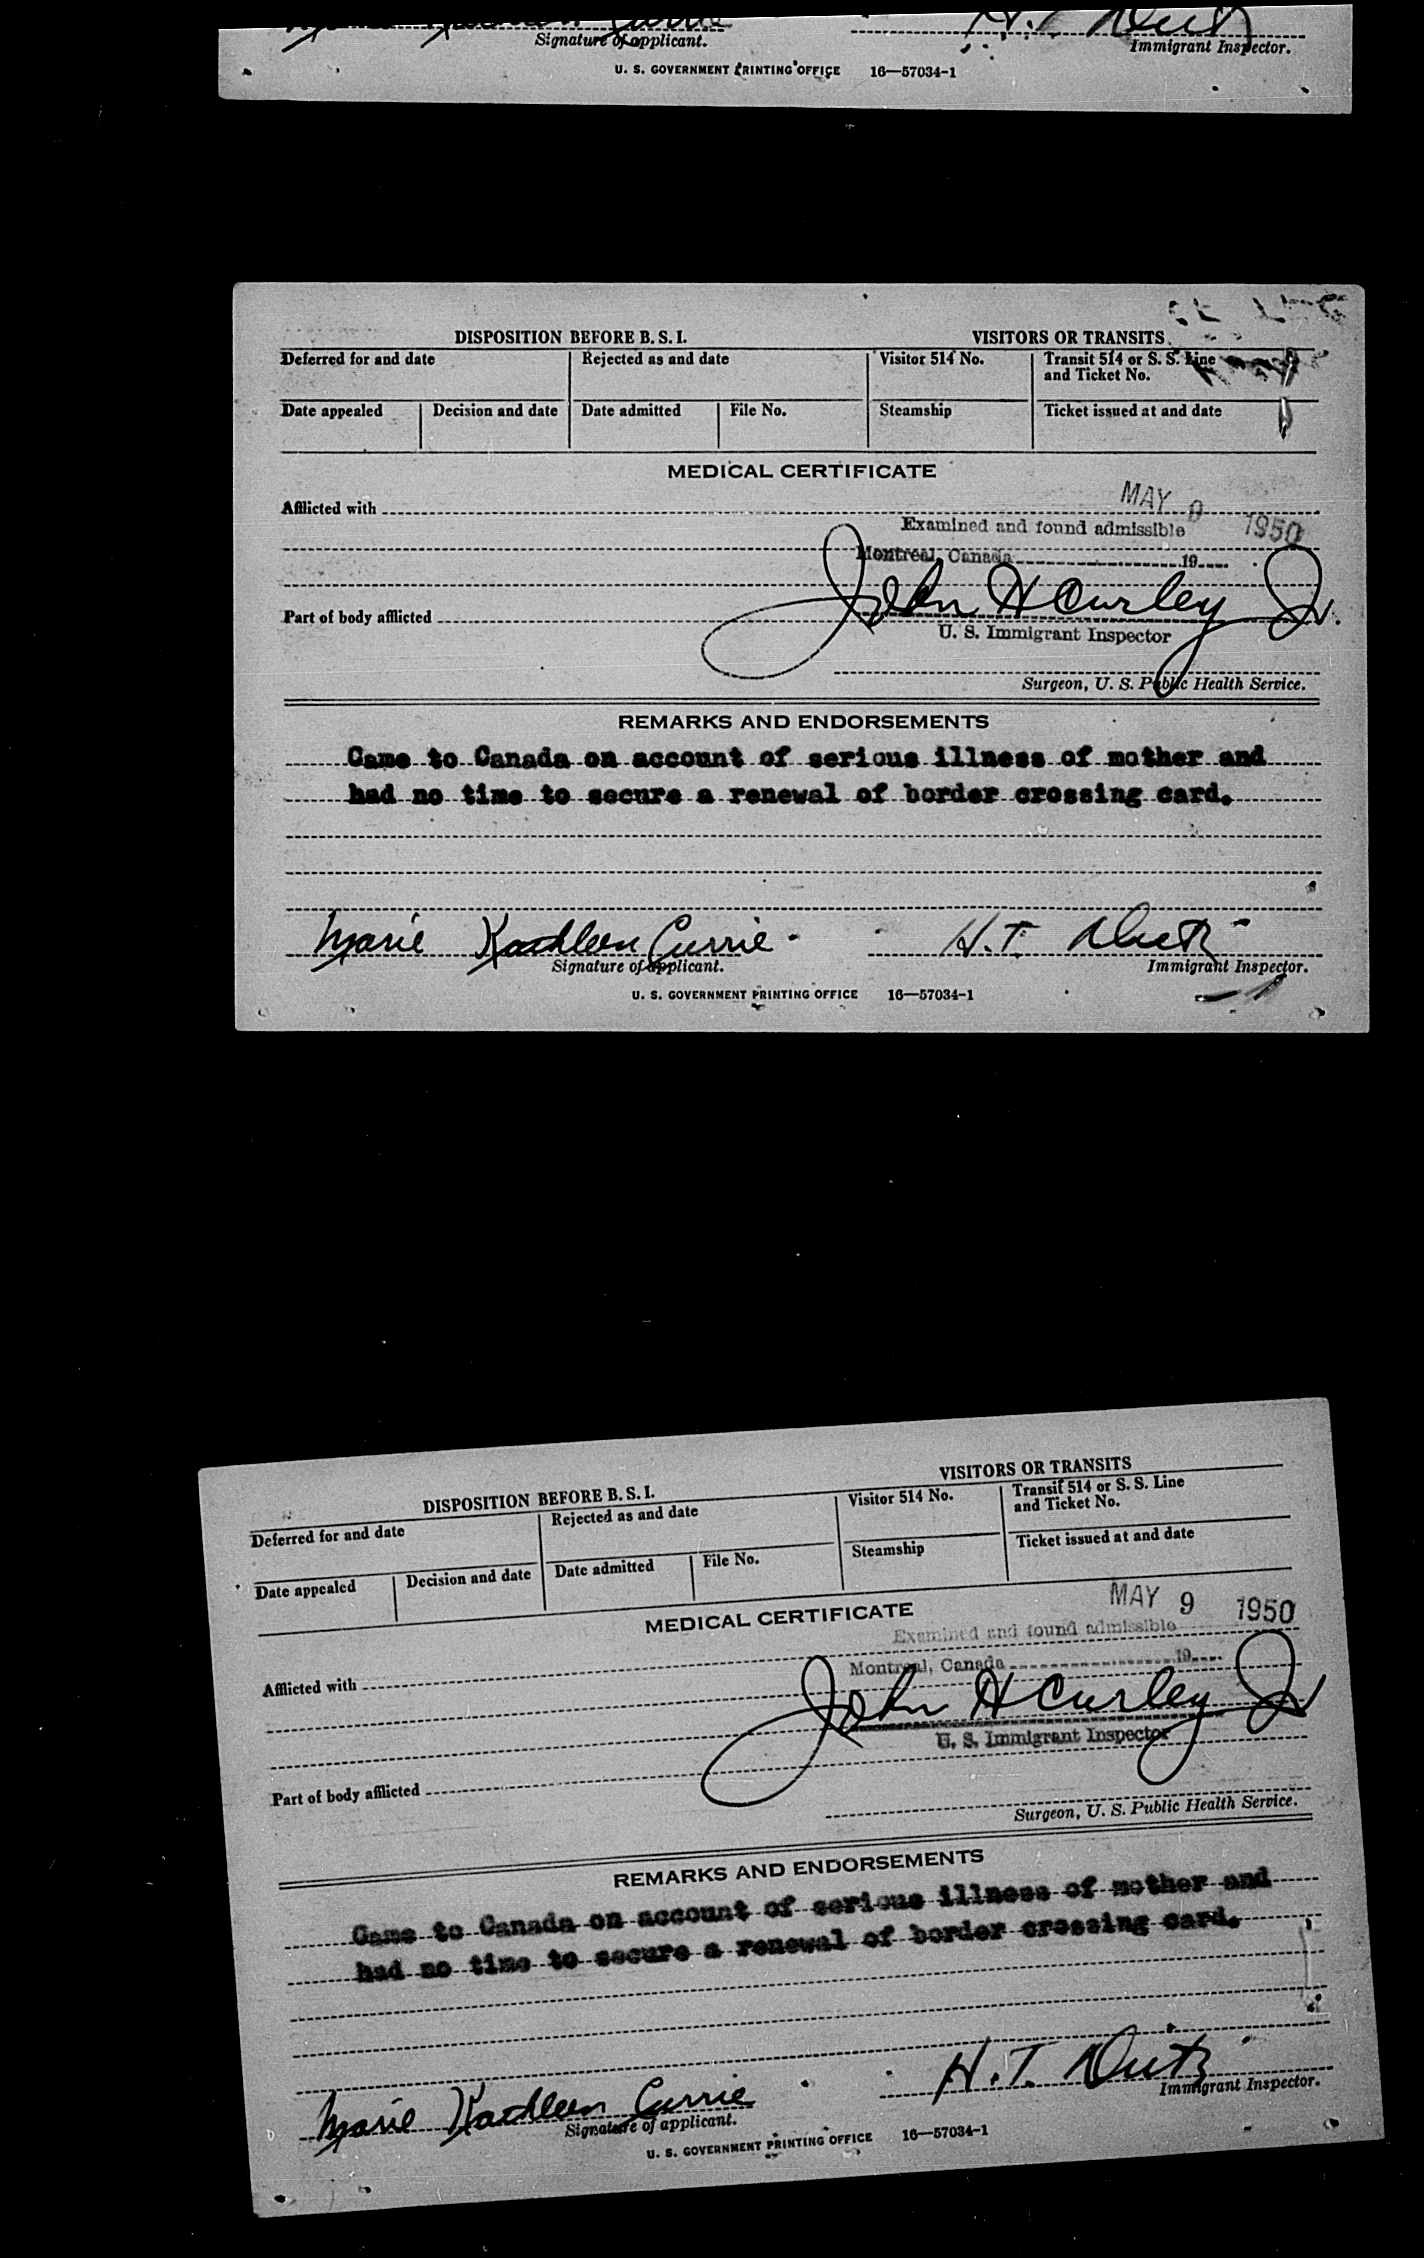 Signature of applicant. Immigrant Inspector.
U. S. GOVERNMENT PRINTING OFFICE 16—57034-1
DISPOSITION BEFORE B. S. I. VISITORS OR TRANSITS
Deferred for and date Rejected as and date Visitor 514 No. Transit 514 or S. S. Line
and Ticket No.
Date appealed Decision and date Date admitted File No. Steamship Ticket issued at and date
MEDICAL CERTIFICATE
MAY 9 1950
Afflicted with
Examined and found admissible
Montreal, Canada 19
John H Curley Jr.
Part of body afflicted
U. S. Immigrant Inspector
Surgeon, U. S. Public Health Service.
REMARKS AND ENDORSEMENTS
Came to Canada on account of serious illness of mother and
had no time to secure a renewal of border crossing card.
Marie Kathleen Currie H. T.
Signature of applicant. Immigrant Inspector.
U. S. GOVERNMENT PRINTING OFFICE 16—57034-1
DISPOSITION BEFORE B. S. I. VISITORS OR TRANSITS
Deferred for and date Rejected as and date Visitor 514 No. Transit 514 or S. S. Line
and Ticket No.
Date appealed Decision and date Date admitted File No. Steamship Ticket issued at and date
MEDICAL CERTIFICATE
MAY 9 1950
Examined and found admissible
Afflicted with
Montreal, Canada 19
John H Curley Jr
U. S. Immigrant Inspector
Part of body afflicted
Surgeon, U. S. Public Health Service.
REMARKS AND ENDORSEMENTS
Came to Canada on account of serious illness of mother and
had no time to secure a renewal of border crossing card.
Marie Kathleen Currie H. T.
Signature of applicant. Immigrant Inspector.
U. S. GOVERNMENT PRINTING OFFICE 16—57034-1